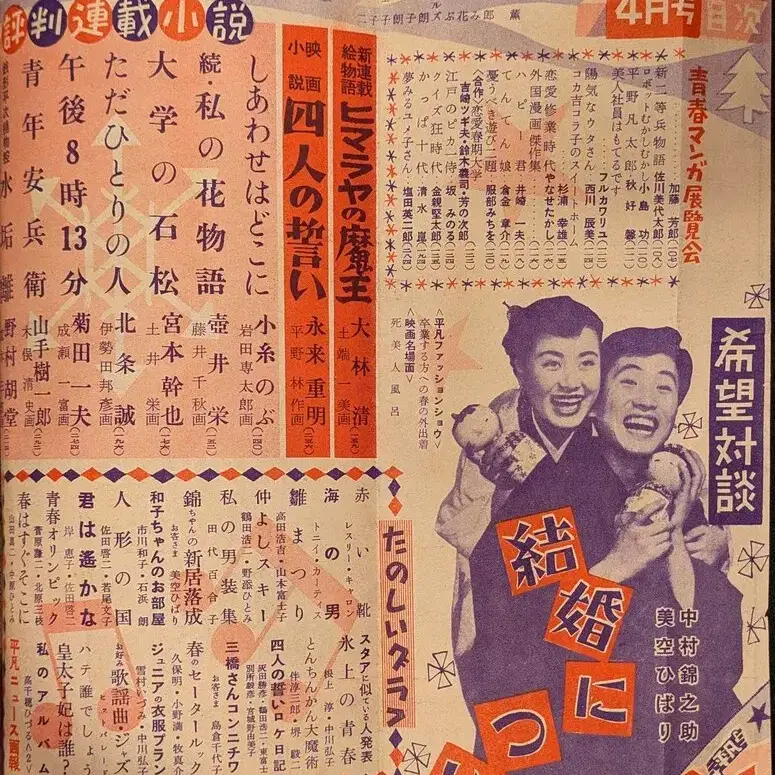 4月号 目次
青春マンガ展覧会
加藤芳郎
新二等兵物語 佐川美代太郎
ロボットむかしむかし 小島功
平野凡太郎 秋好馨
美人社員はもてるです
陽気なウタさん 西川辰美
コカ吉コラ子のスイートホーム
フルカワリュ
恋愛修業時代 やなせたかし
外国漫画傑作集
杉浦幸雄
ハッピー君 井崎一夫
てんてん娘 倉金章介
憂うべき遊び二題 服部みちを
〈合作〉恋愛春期大学
吉崎ツギ夫・鈴木義司・芳の次郎
江戸のピカ侍 坂みのる
クイズ狂時代 金親堅太郎
かっぱ十代 清水崑
夢みるユメ子さん 塩田英二郎
希望対談
結婚に
つ
中村錦之助
美空ひばり
〈平凡ファッションショウ〉
卒業する方への春の外出着
〈映画名場面〉
死美人風呂
評判連載小説
新連載絵物語 ヒマラヤの魔王 大林清
土端一美画
映画小説 四人の誓い 永来重明
平野林作画
しあわせはどこに 小糸のぶ
岩田専太郎画
続・私の花物語 壺井栄
藤井千秋画
大学の石松 宮本幹也
土井栄画
ただひとりの人 北条誠
伊勢田邦彦画
午後8時13分 菊田一夫
成瀬一富画
青年安兵衛 山手樹一郎
木俣清史画
野村胡堂
たのしいグラフ
赤い靴
レスリー・キャロン
海の男
トニイ・カーティス
雛まつり
高田浩吉・山本富士子
仲よしスキー
鶴田浩二・野添ひとみ
私の男装集
田代百合子
錦ちゃんの新居落成
お客さま 美空ひばり
和子ちゃんのお部屋
市川和子・石浜朗
人形の国
佐田啓二・若尾文子
君は遙かな
岸恵子・佐田啓二
青春オリンピック
菅原謙二・北原三枝
春はすぐそこに
スタアに似ている人発表
氷上の青春
根上淳・中川弘子
とんちんかん大魔術
伴淳三郎・堺駿二
四人の誓いロケ日記
三橋さんコンニチワ
お客さま 島倉千代子
春のセータールック
久保明・小野満・牧真介
ジュニアの衣服プラン
雪村いづみ・中川弘子
お好み歌謡曲・ジャズ
ヒットパレード
ハテ誰でしょう
皇太子妃は誰?
私のアルバム
高千穂ひづる
平凡ニュース画報